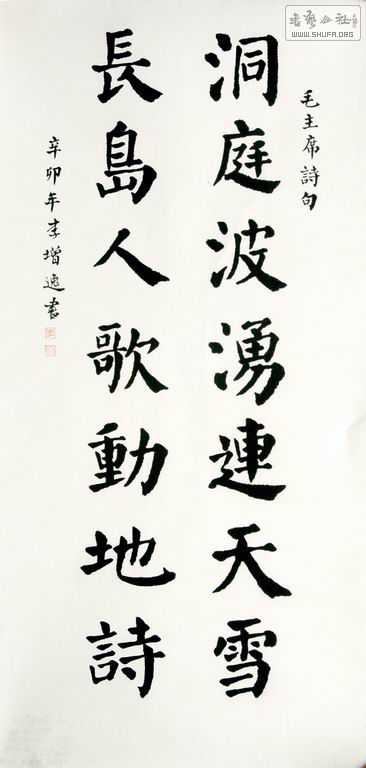 毛主席詩句
洞庭波湧連天雪
長島人歌動地詩
辛卯年李增逸書
書藝公社
WWW.SHUFA.ORG